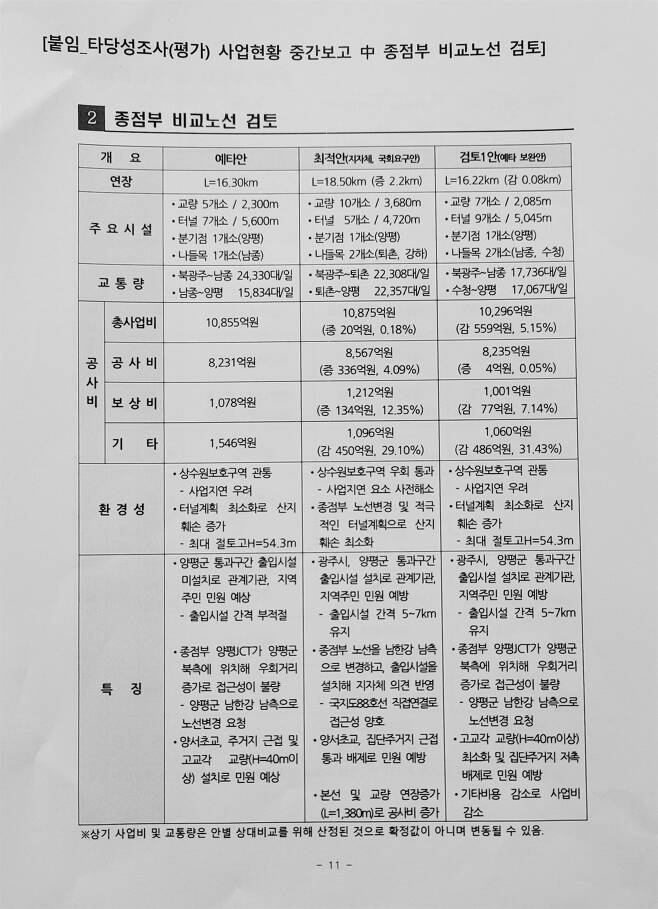 [붙임_타당성조사(평가) 사업현황 중간보고 中 종점부 비교노선 검토]
2 종점부 비교노선 검토
개 요 예타안 최적안(지자체, 국회요구안) 검토1안(예타 보완안)
연장 L=16.30km L=18.50km (증 2.2km) L=16.22km (감 0.08km)
주 요 시 설
•교량 5개소 / 2,300m
•터널 7개소 / 5,600m
•분기점 1개소(양평)
•나들목 1개소(남종)
•교량 10개소 / 3,680m
•터널 5개소 / 4,720m
•분기점 1개소(양평)
•나들목 2개소(퇴촌, 강하)
•교량 7개소 / 2,085m
•터널 9개소 / 5,045m
•분기점 1개소(양평)
•나들목 2개소(남종, 수청)
교 통 량
•북광주~남종 24,330대/일
•남종~양평 15,834대/일
•북광주~퇴촌 22,308대/일
•퇴촌~양평 22,357대/일
•북광주~남종 17,736대/일
수청~양평 17,067대/일
공
사
비
총사업비
10,855억원
10,875억원
(증 20억원, 0.18%)
10,296억원
(감 559억원, 5.15%)
공 사 비
8,231억원
8,567억원
(증 336억원, 4.09%)
8,235억원
(증 4억원, 0.05%)
보 상 비
1,078억원
1,212억원
(증 134억원, 12.35%)
1,001억원
(감 77억원, 7.14%)
기 타
1,546억원
1,096억원
(감 450억원, 29.10%)
1,060억원
(감 486억원, 31.43%)
환 경 성
•상수원보호구역 관통
- 사업지연 우려
•터널계획 최소화로 산지
훼손 증가
- 최대 절토고H=54.3m
•상수원보호구역 우회 통과
- 사업지연 요소 사전해소
•종점부 노선변경 및 적극
적인 터널계획으로 산지
훼손 최소화
•상수원보호구역 관통
- 사업지연 우려
•터널계획 최소화로 산지
훼손 증가
- 최대 절토고H=54.3m
특 징
•양평군 통과구간 출입시설
미설치로 관계기관, 지역
주민 민원 예상
- 출입시설 간격 부적절
•종점부 양평JCT가 양평군
북측에 위치해 우회거리
증가로 접근성이 불량
- 양평군 남한강 남측으로
노선변경 요청
•양서초교, 주거지 근접 및
고교각 교량(H=40m이
상) 설치로 민원 예상
•광주시, 양평군 통과구간
출입시설 설치로 관계기관,
지역주민 민원 예방
- 출입시설 간격 5~7km
유지
•종점부 노선을 남한강 남측
으로 변경하고, 출입시설을
설치해 지자체 의견 반영
- 국지도88호선 직접연결로
접근성 양호
•양서초교, 집단주거지 근접
통과 배제로 민원 예방
•본선 및 교량 연장증가
(L=1,380m)로 공사비 증가
•광주시, 양평군 통과구간
출입시설 설치로 관계기관,
지역주민 민원 예방
- 출입시설 간격 5~7km
유지
•종점부 양평JCT가 양평군
북측에 위치해 우회거리
증가로 접근성이 불량
- 양평군 남한강 남측으로
노선변경 요청
•고교각 교량(H=40m이상)
최소화 및 집단주거지 저촉
배제로 민원 예방
•기타비용 감소로 사업비
감소
※상기 사업비 및 교통량은 안별 상대비교를 위해 산정된 것으로 확정값이 아니며 변동될 수 있음.
- 11 -